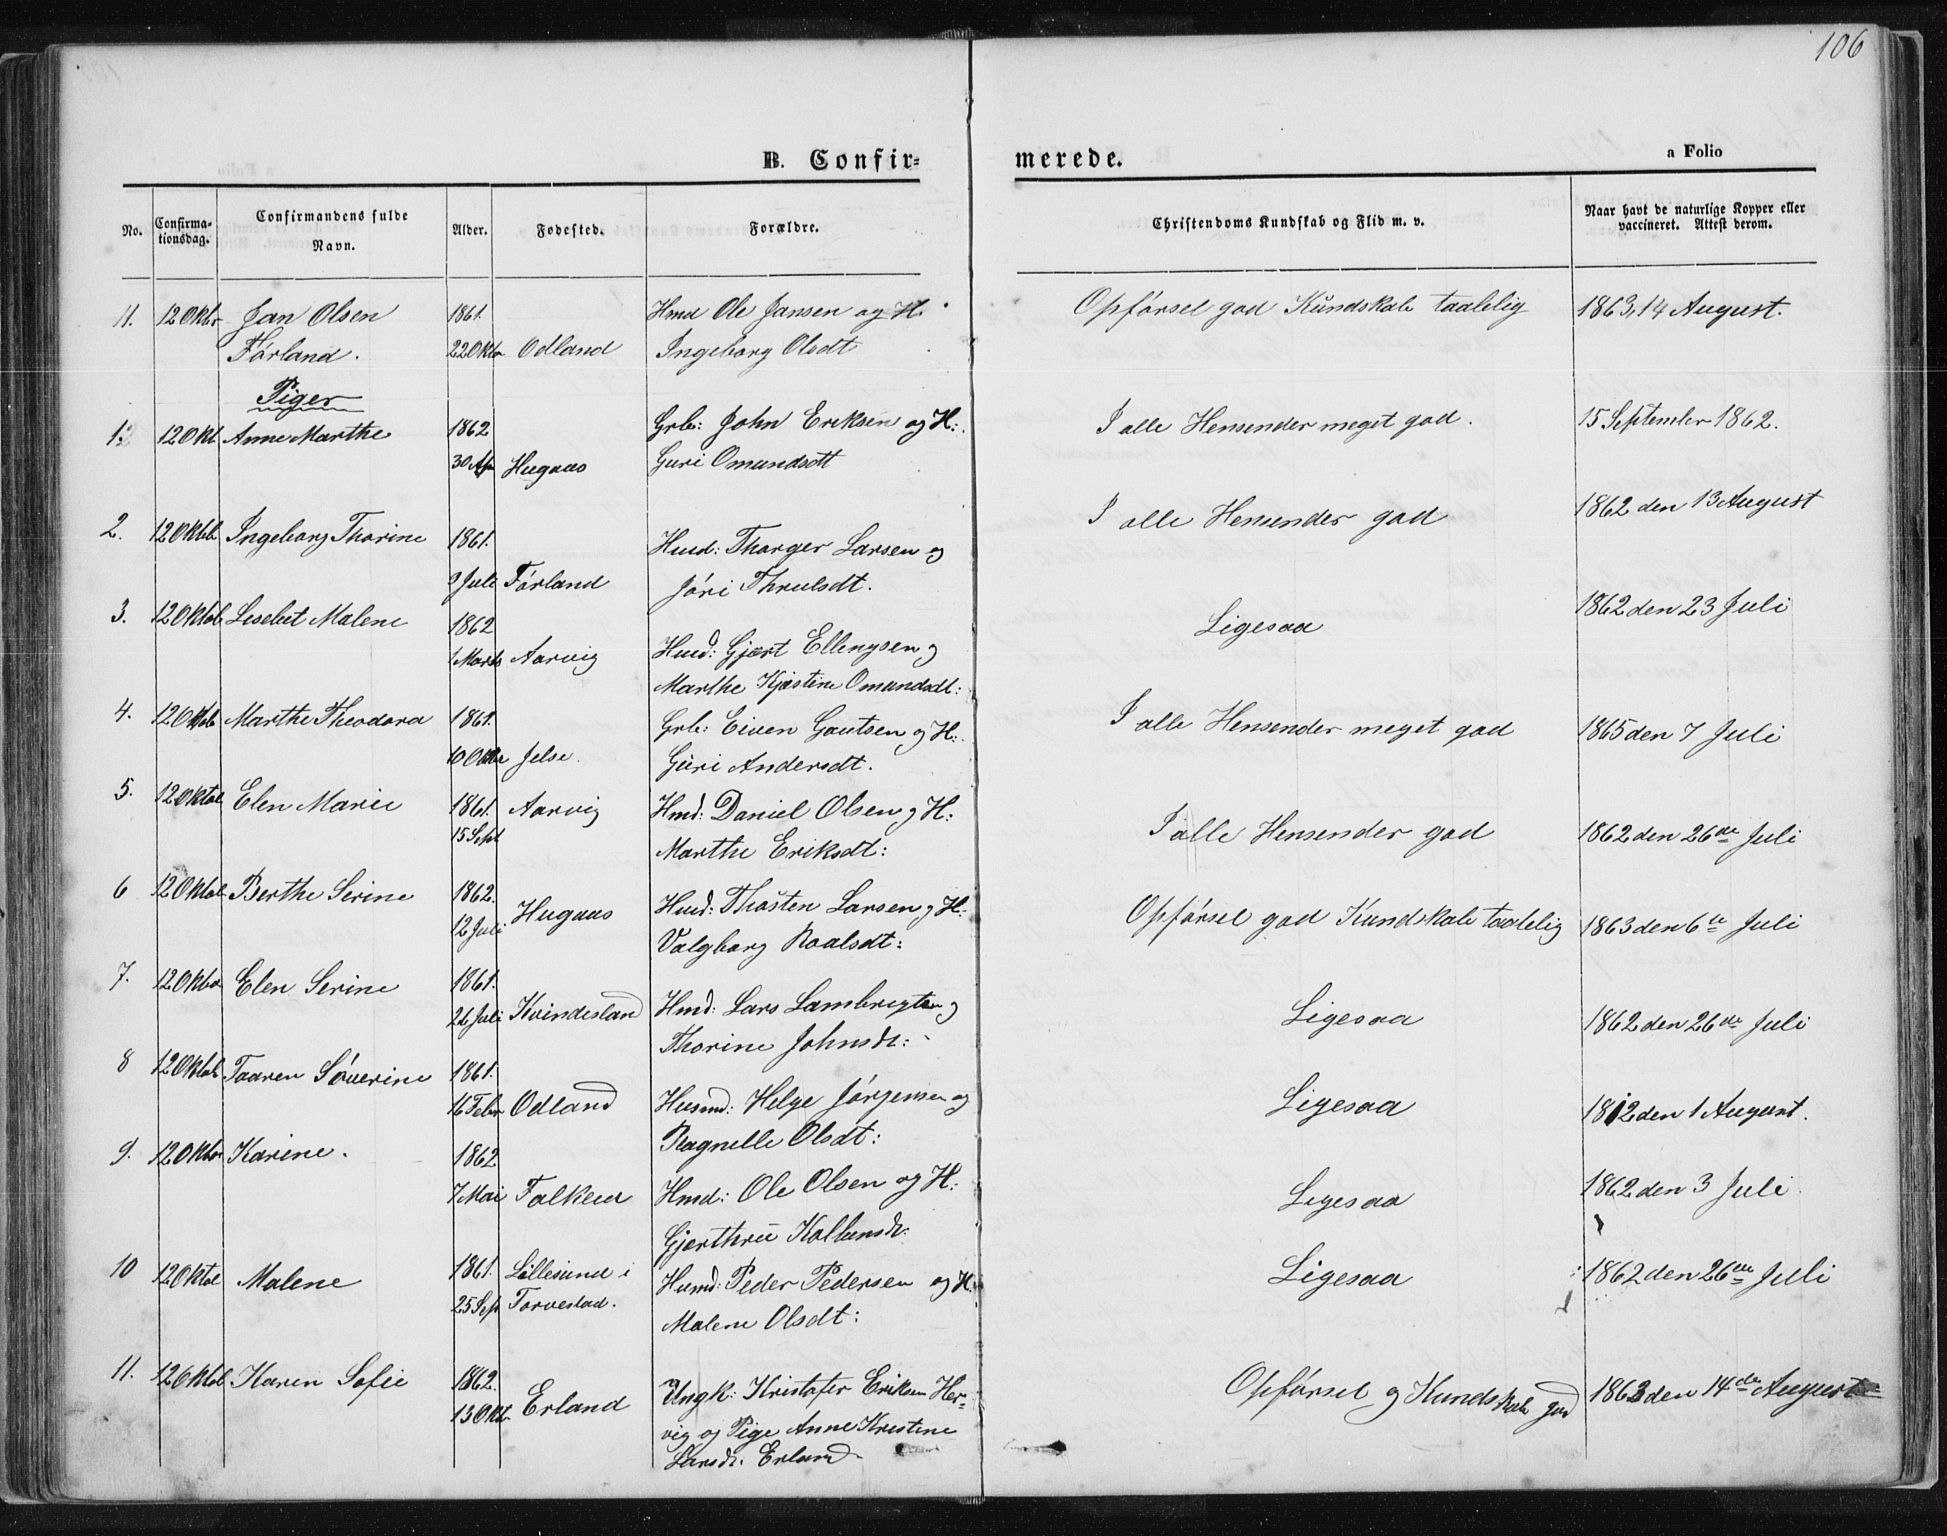 106
B. Confir=
merede.
a Folio
No.
Confirma-
tionsdag.
Confirmandens fulde
Navn.
Alder.
Fødested.
Forældre.
Christendoms Kundskab og Flid m. v.
Naar havt de naturlige Kopper eller
vaccineret. Attest derom.
11. 12 Oktr Jan Olsen 1861. Hmd Ole Jansen og H. Opførsel god Kundskab taalelig 1863, 14 August.
Førland. 22 Oktbr Odland Ingeborg Olsdt
Piger
1. 12 Okt. Anne Marthe 1862 Grb: John Eriksen og H: I alle Hensender meget god. 15 September 1862.
30 Apr Hugaas Guri Omundsdt
2. 12 Oktb. Ingeborg Thorine 1861. Husd: Thorger Larsen og I alle Hensender god 1862 den 13 August
9 Juli Førland Jóri Thrulsdt.
3. 12 Oktob Lisebet Malene 1862 Ligesaa 1862 den 23 Juli
1 Marts Aarvig Husd: Gjært Ellengsen og
Marthe Kjæstine Omundsdt:
4. 12 Oktb Marthe Theodora 1861. Grb: Eiven Gautsen og H: I alle Hensender meget god 1865 den 7 Juli
10 Oktbr Jelse. Guri Andersdt.
5. 12 Oktob Elen Marie 1861. Aarvig Hmd: Daniel Olsen og H: I alle Hensender god 1862 den 26de Juli
15 Sept Marthe Eriksdt:
6 12 Oktob Berthe Serine 1862. Hugaas Husd: Thosten Larsen og H: Opførsel god Kundskab taalelig 1863 den 6te Juli
12 Juli Valgborg Roalsdt:
7. 12 Oktbr Elen Serine 1861. Hmd: Lars Lambregtsen og Ligesaa 1862 den 26de Juli
26 Juli Kvindesland Thorine Johnsdt:
8 12 Oktob Taaren Søverine 1861. Ligesaa 1812 den 1 August.
16 Febr Odland Husmd: Helge Jørgensen og
Ragnelle Olsdt:
9. 12 Oktbr Karine. 1862 Ligesaa 1862 den 3 Juli.
7 Mai Falkeid Hmd: Ole Olsen og H:
Gjerthru Kolbensdt.
10 12 Oktob Malene 1861. Lillesund i Husmd: Peder Pedersen og H. Ligesaa 1862 den 26de Juli
25 Sep Torvestad. Malene Olsdt:
11. 12 Oktob Karen Sofie 1862. Ungk: Kristofer Eriksen Her- Opførsel og Kundskab god 1863 den 14de August
13 Okt. Erland vig og Pige Anne Kristine
Larsdt. Erland